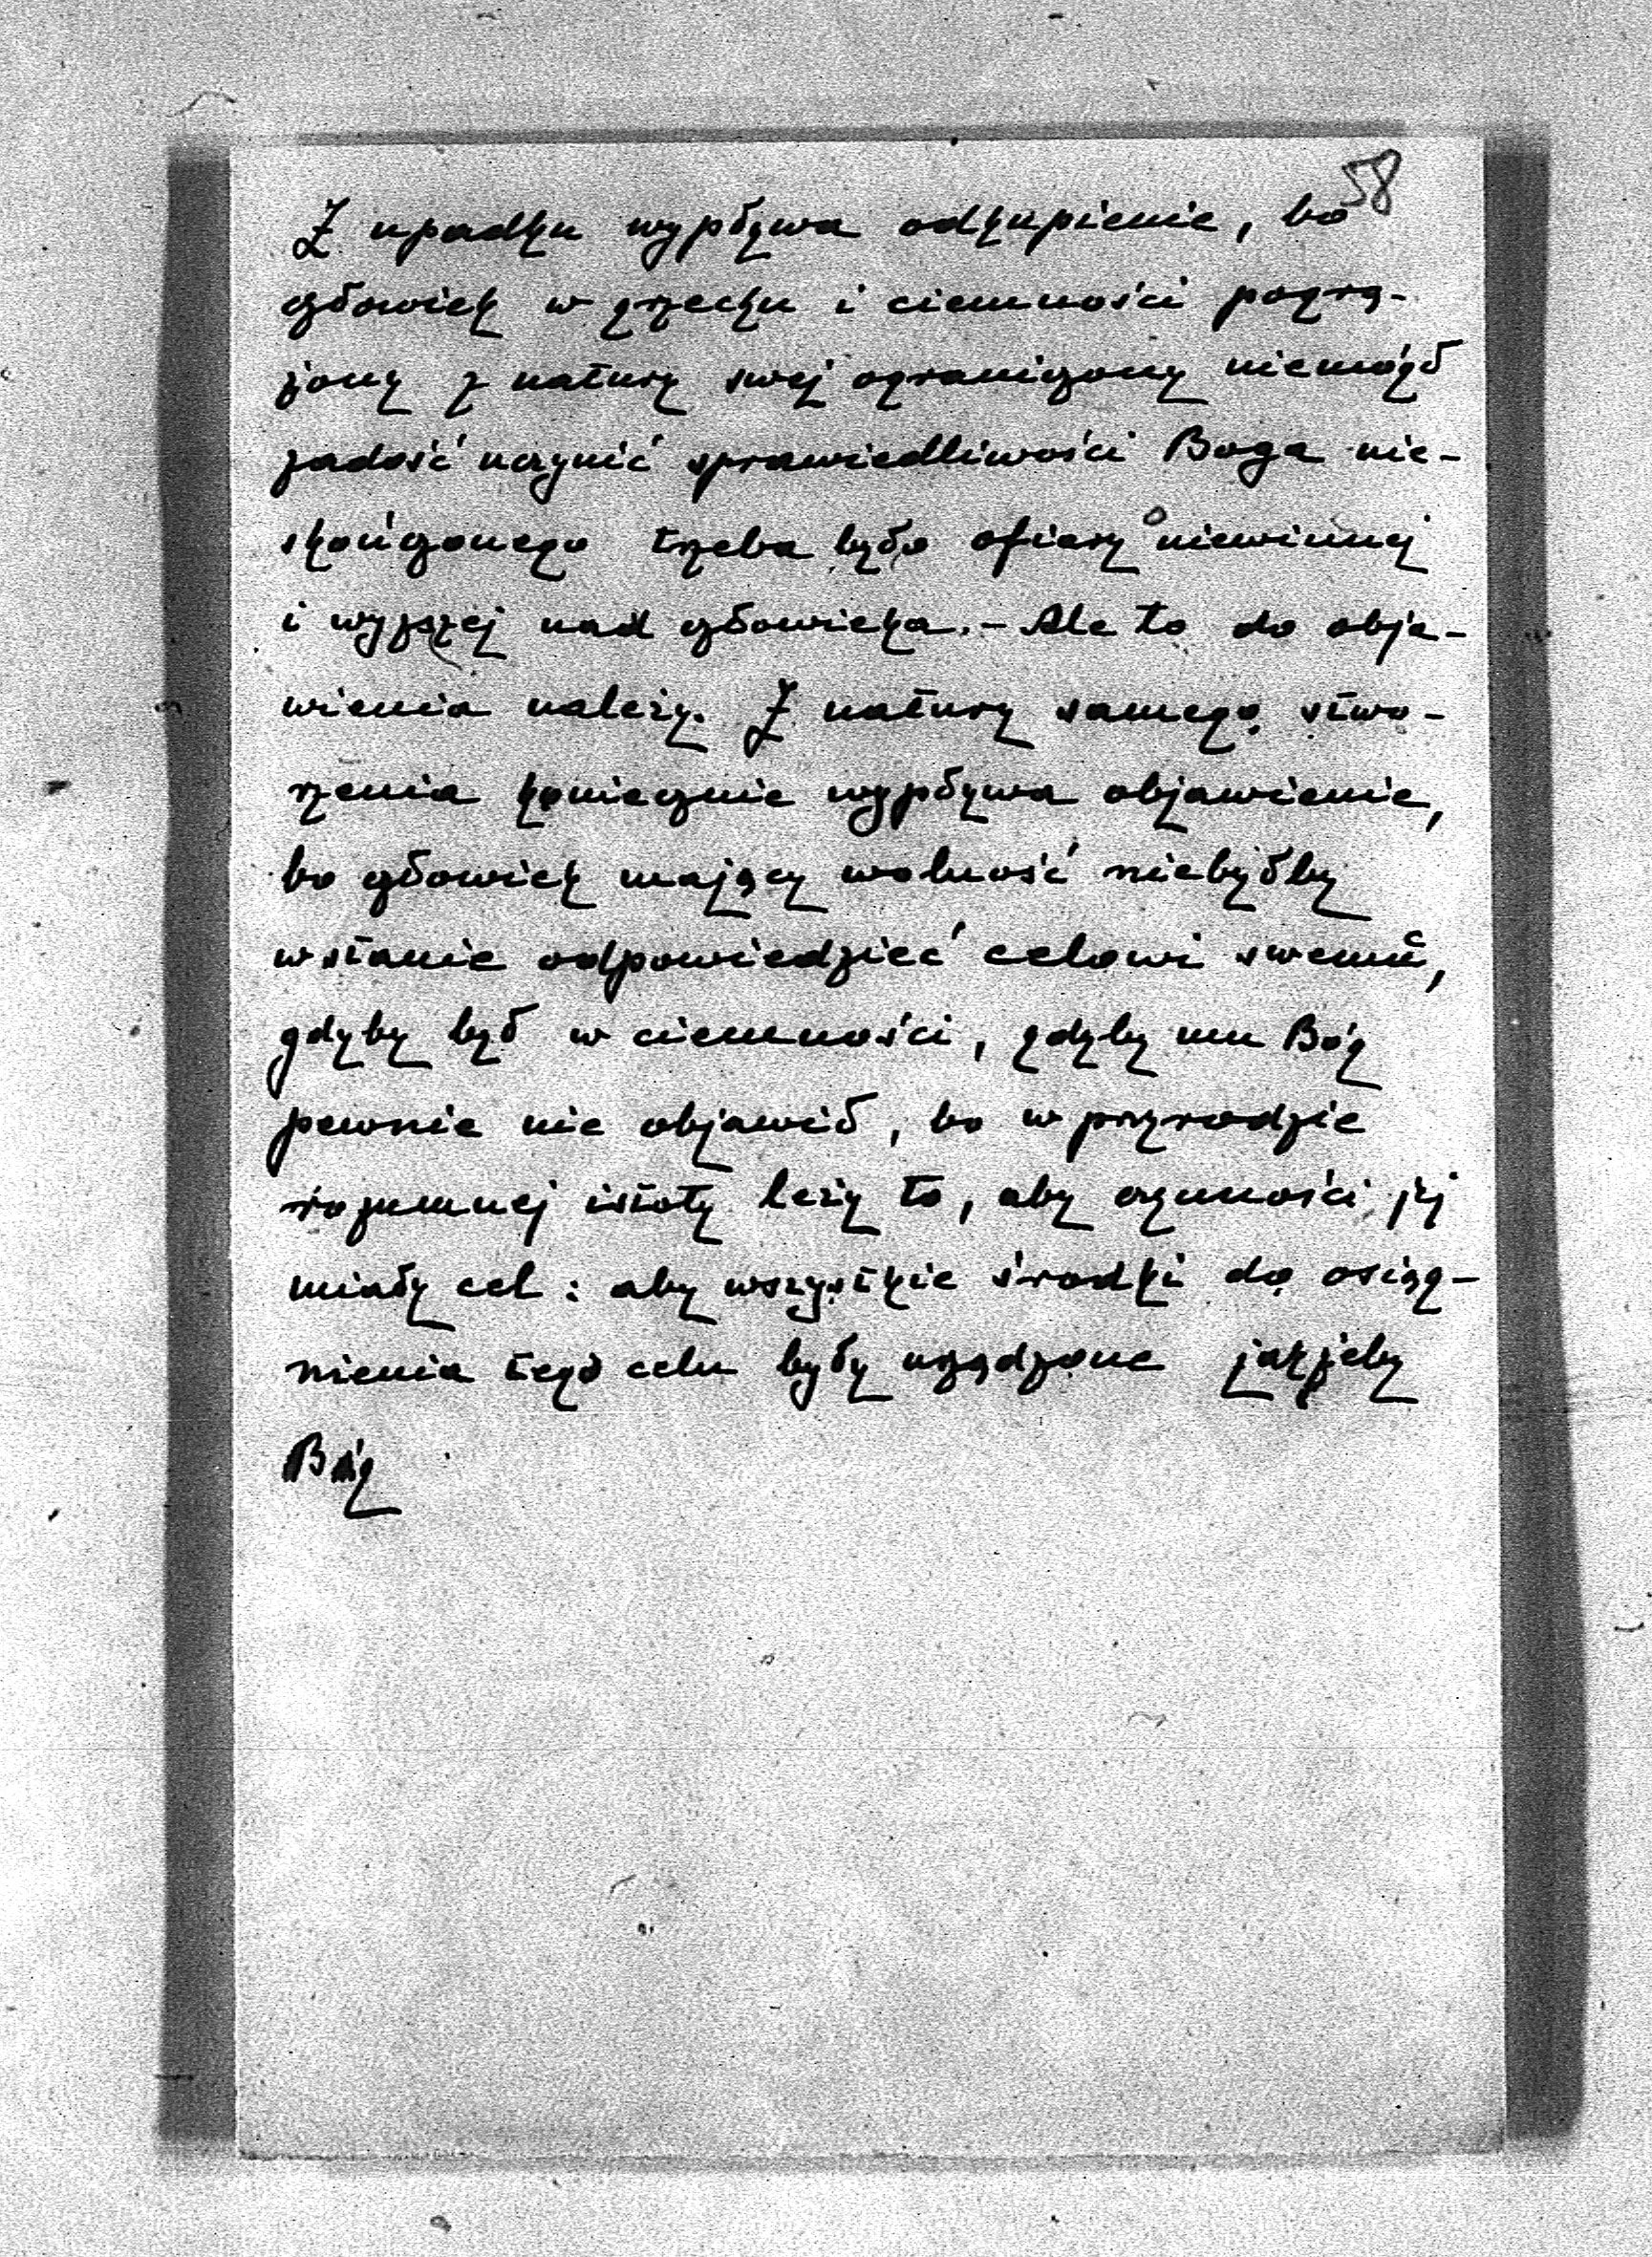 58
Z upadku wypływa odkupienie, bo
człowiek w grzechu i ciemności pogrą-
żony z natury swej ograniczony niemógł
zadość uczynić sprawiedliwości Boga nie-
skończonego trzeba było ofiary niewinnej
i wyższej nad człowieka. - Ale to do obja-
wienia należy. Z natury samego stwo-
rzenia koniecznie wypływa objawienie,
bo człowiek mający wolność niebyłby
wstanie odpowiedzieć celowi swemu,
gdyby był w ciemności, gdyby mu Bóg
pewnie nie objawił, bo w przyrodzie
rozumnej istoty leży to, aby czynności jej
miały cel: aby wszystkie środki do osiąg-
nienia tego celu były urządzone jakżeby
Bóg